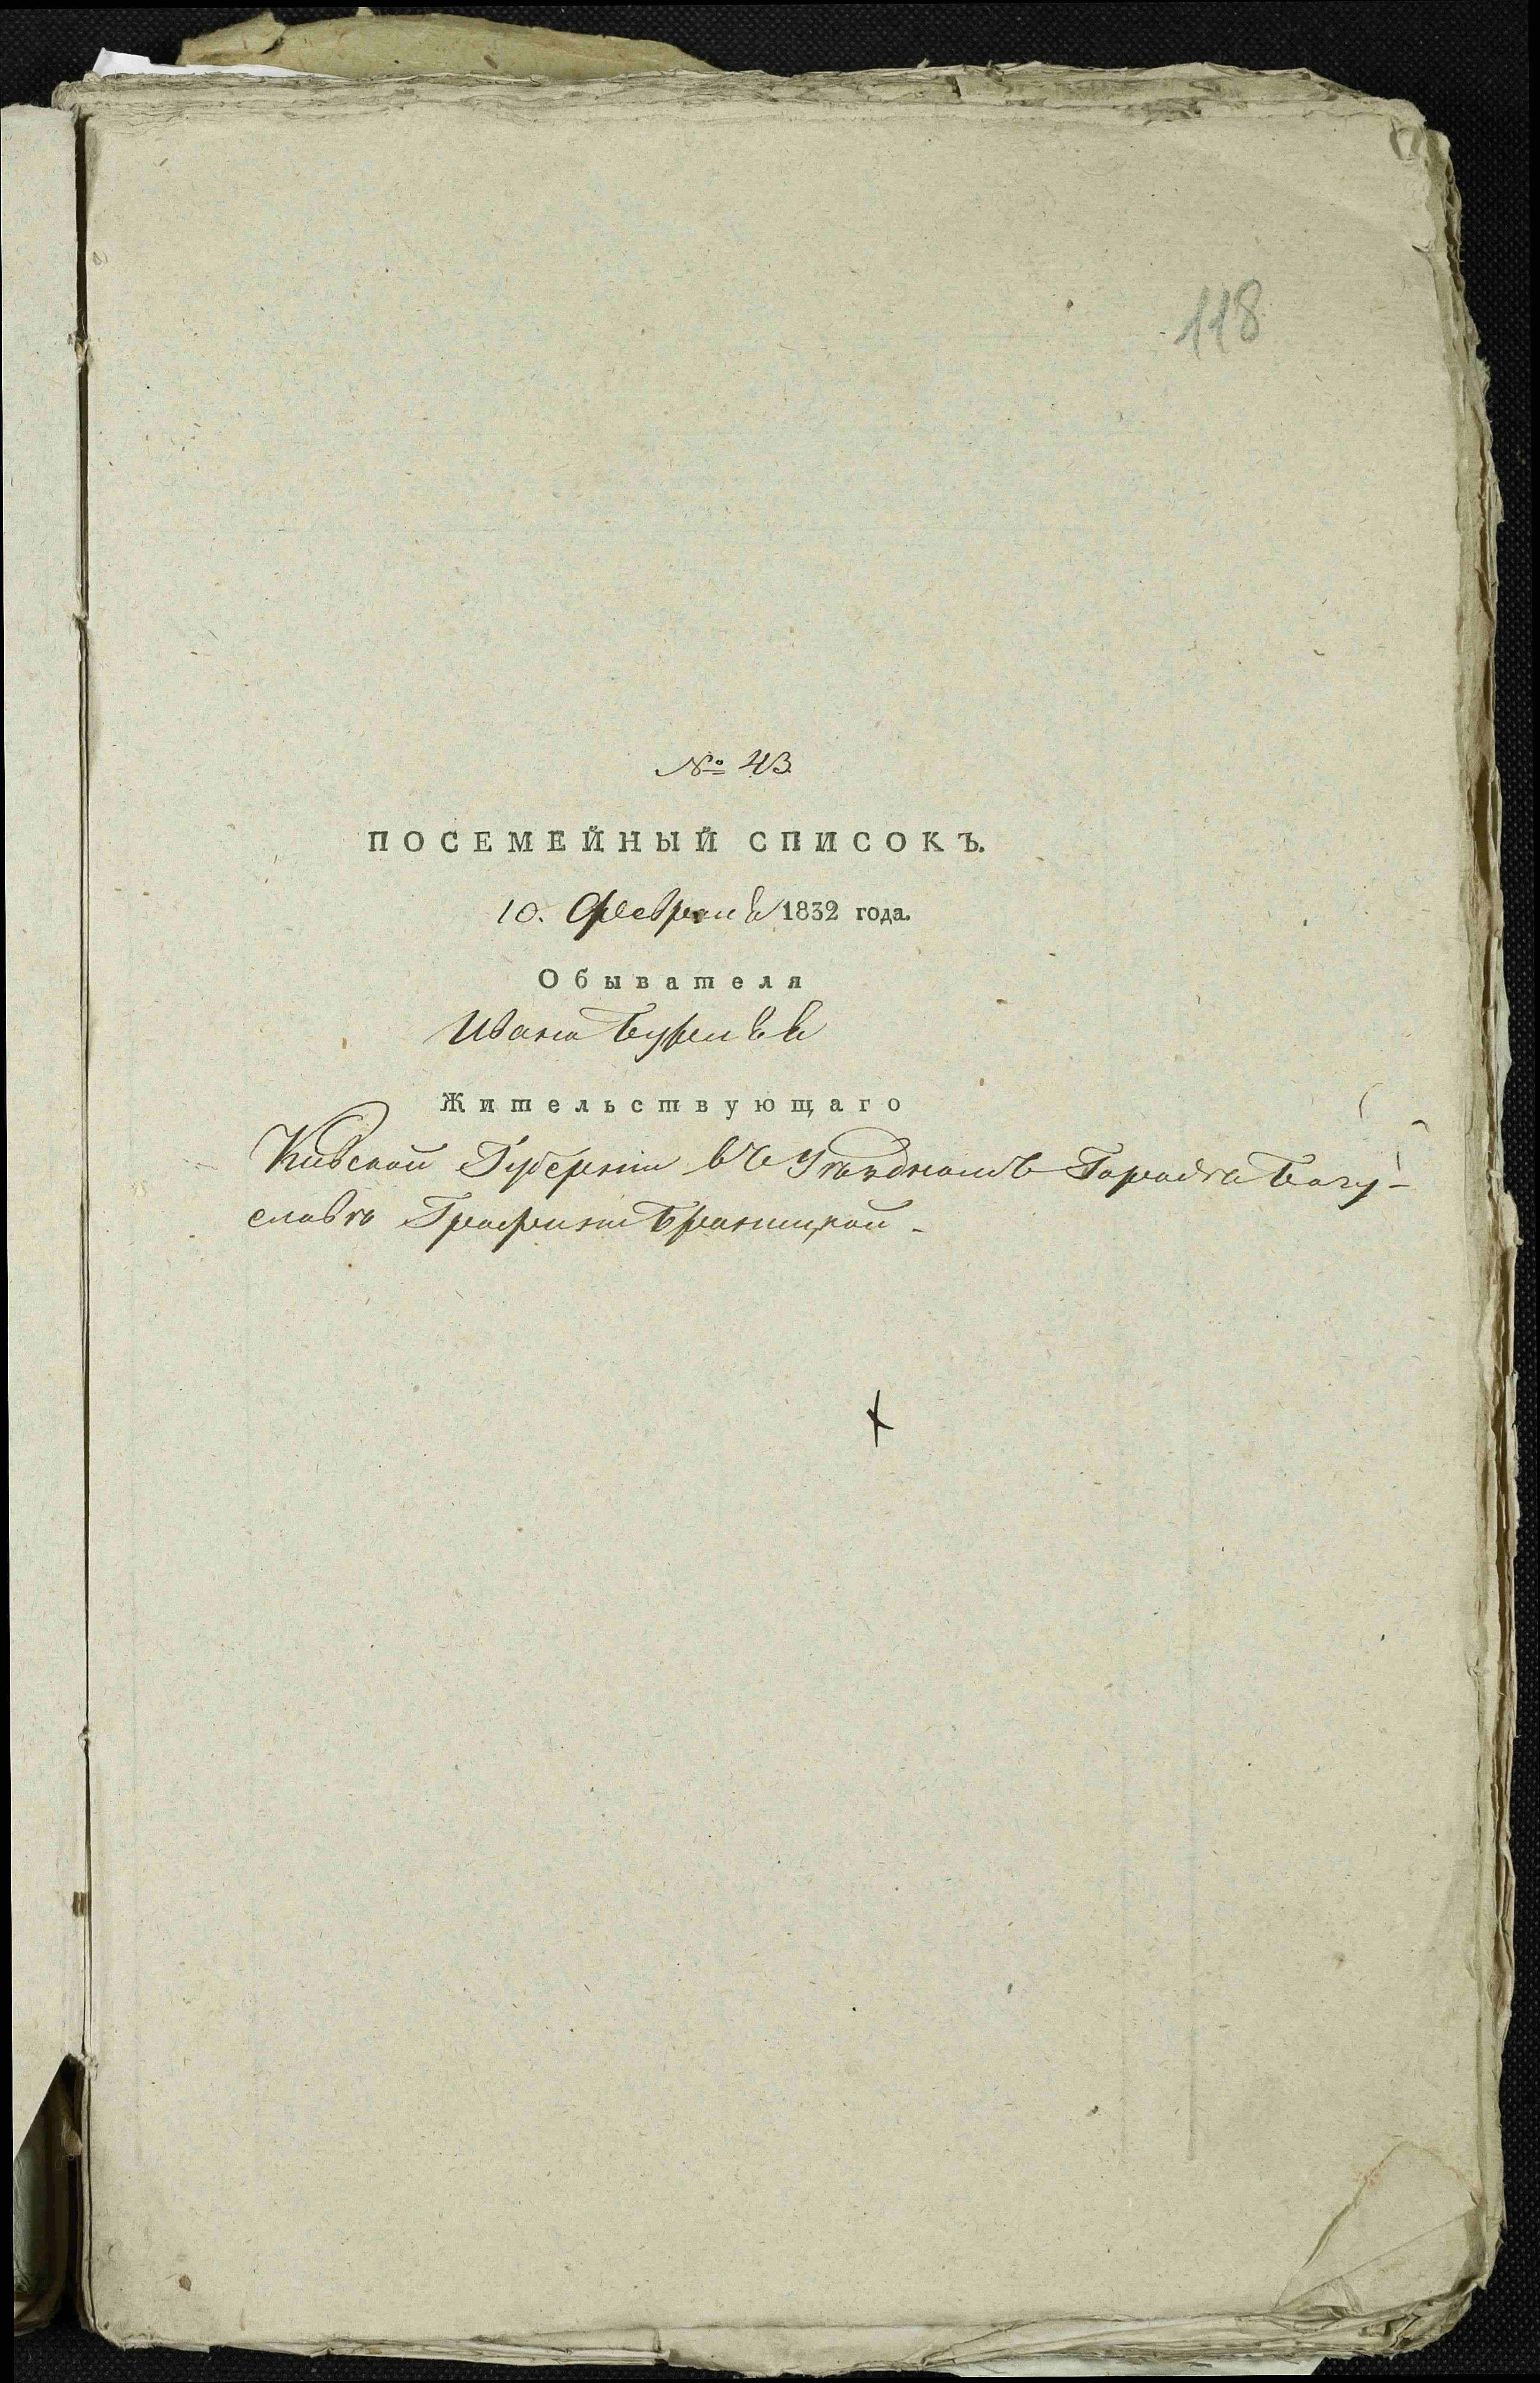 118
№ 43.
ПОСЕМЕЙНЫЙ СПИСОКЪ.
10. Февраля 1832 года.
Обывателя
Ивана
Жительствующаго
Кіевской Губерніи въ Уѣздномъ Городѣ Богу-
славѣ Графини Браницкой.